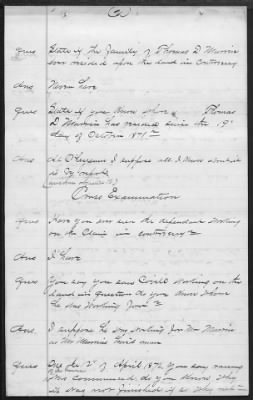 Ques State if the Family of Thomas D. Murrin
ever resided upon the land in controversy
Ans Never have
Ques State if you know where Thomas
D Murrin has resided since the 19"
day of October 1871
Ans At Cheyenne I suppose all I know about it
is by
Cross Examination
Ques Have you ever seen the defendant working
on the Claim in controversy
Ans I have
Ques You say you saw Covill working on the
land in question do you know whom
he was working for
Ans I suppose he was working for Mr Murrin
as Mr Murrins hired man
Ques On the 2" of April 1872 you say
was commenced do you know why
it was not finished